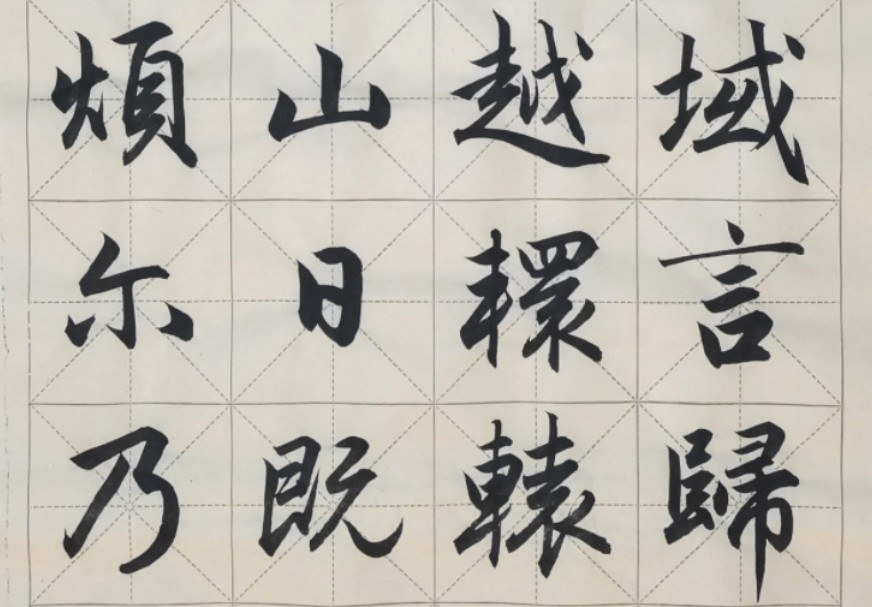 域言歸
越轘轅
山日既
煩尔乃